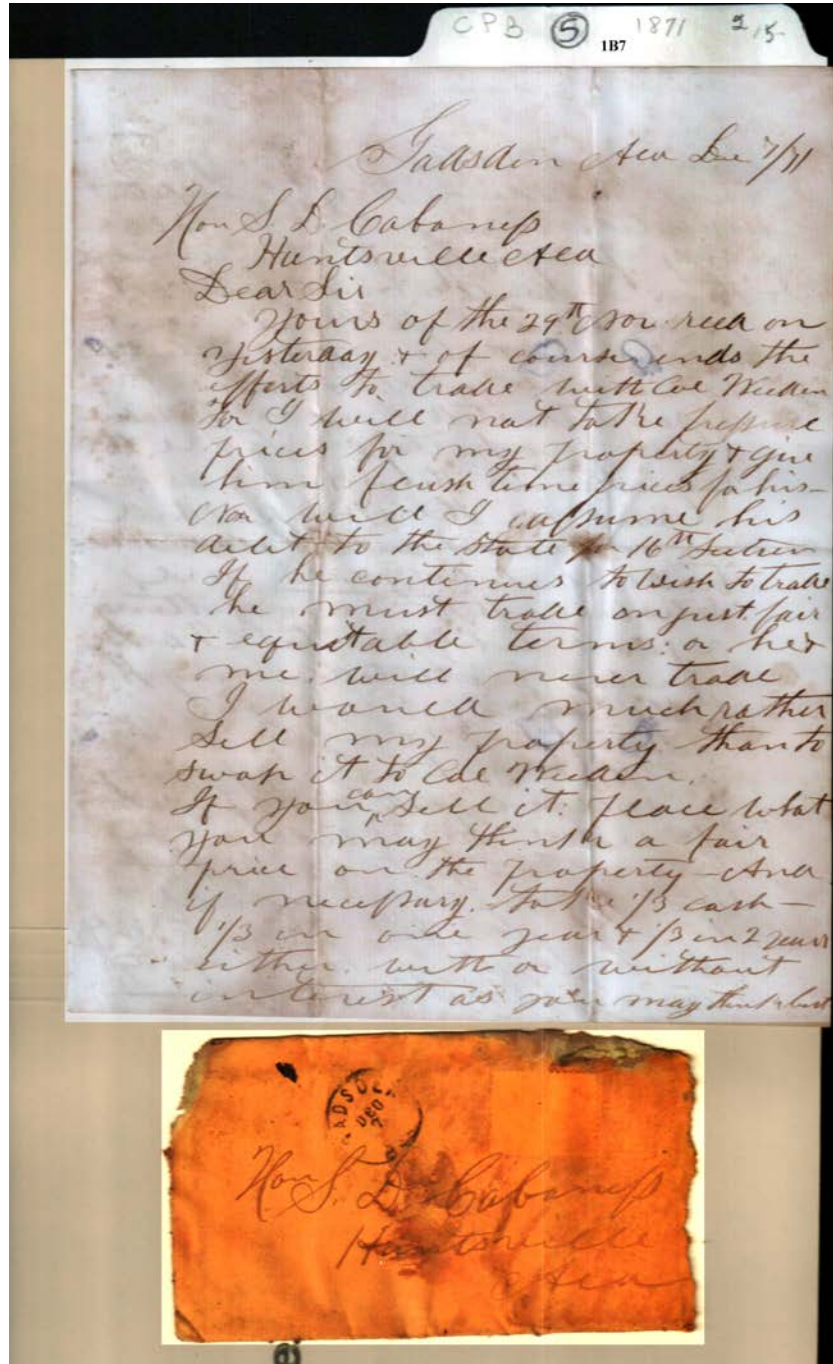 CPB 5 1871 2/5
1B7
Gadsden Ala Dec 7/71
Hon S. D. Cabaniss
Huntsville Ala
Dear Sir
Yours of the 29th Nov. recd on
yesterday & of course ends the
efforts to trade with Col Weeden
for I will not take pressure
prices for my property & give
him flush time prices for his –
Nor will I assume his
debt to the State for 16th Section
If he continues to wish to trade
he must trade on just fair
& equitable terms: or he &
me will never trade
I would much rather
sell my property than to
swap it to Col Weeden.
If you can sell it: place what
you may think a fair
price on the property – And
if necessary. take 1/3 cash –
1/3 in one year & 1/3 in 2 years
either with or without
interest as you may think best
GADSDEN
DEC
7
Hon S. D. Cabaniss
Huntsville
Ala